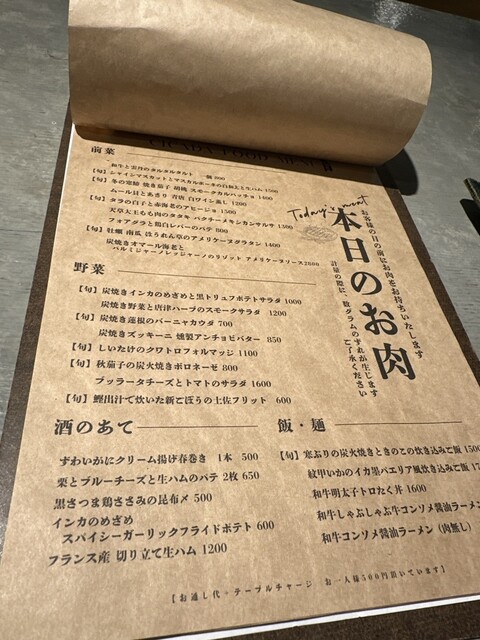 CICADA FOOD MENU
前菜
和牛と雲丹のタルタルタルト 一個 800
【旬】シャインマスカットとマスカルポーネの白和えと生ハム 1500
【旬】冬の寒鰆 焼き茄子 胡桃 スモークカルパッチョ 1400
ムール貝とあさり 青唐 白ワイン蒸し 1200
【旬】タラの白子と赤海老のアヒージョ 1500
天草大王もも肉のタタキ パクチーメキシカンサルサ 1300
フォアグラと鶏白レバーのパテ 800
【旬】牡蠣 南瓜 ほうれん草のアメリケーヌグラタン 1400
炭焼きオマール海老と
パルミジャーノレッジャーノのリゾット アメリケーヌソース 2800
野菜
【旬】炭焼きインカのめざめと黒トリュフポテトサラダ 1000
炭焼き野菜と唐津ハーブのスモークサラダ 1200
【旬】炭焼き蓮根のバーニャカウダ 700
炭焼きズッキーニ 燻製アンチョビバター 850
【旬】しいたけのクワトロフォルマッジ 1100
【旬】秋茄子の炭火焼きボロネーゼ 800
ブッラータチーズとトマトのサラダ 1600
【旬】鰹出汁で炊いた新ごぼうの土佐フリット 600
Today's meat
本日のお肉
お客様の目の前にお肉をお持ちいたします
計量の際に、数グラムのずれが生じます
ご了承ください
酒のあて
ずわいがにクリーム揚げ春巻き 1本 500
栗とブルーチーズと生ハムのパテ 2枚 650
黒さつま鶏ささみの昆布〆 500
インカのめざめ
スパイシーガーリックフライドポテト 600
フランス産 切り立て生ハム 1200
飯・麺
【旬】寒ぶりの炭火焼ときのこの炊き込みご飯 1500
紋甲いかのイカ墨パエリア風炊き込みご飯
和牛明太子トロたく丼 1600
和牛しゃぶしゃぶ牛コンソメ醤油ラーメン
和牛コンソメ醤油ラーメン（肉無し）
【お通し代・テーブルチャージ お一人様500円頂いています】